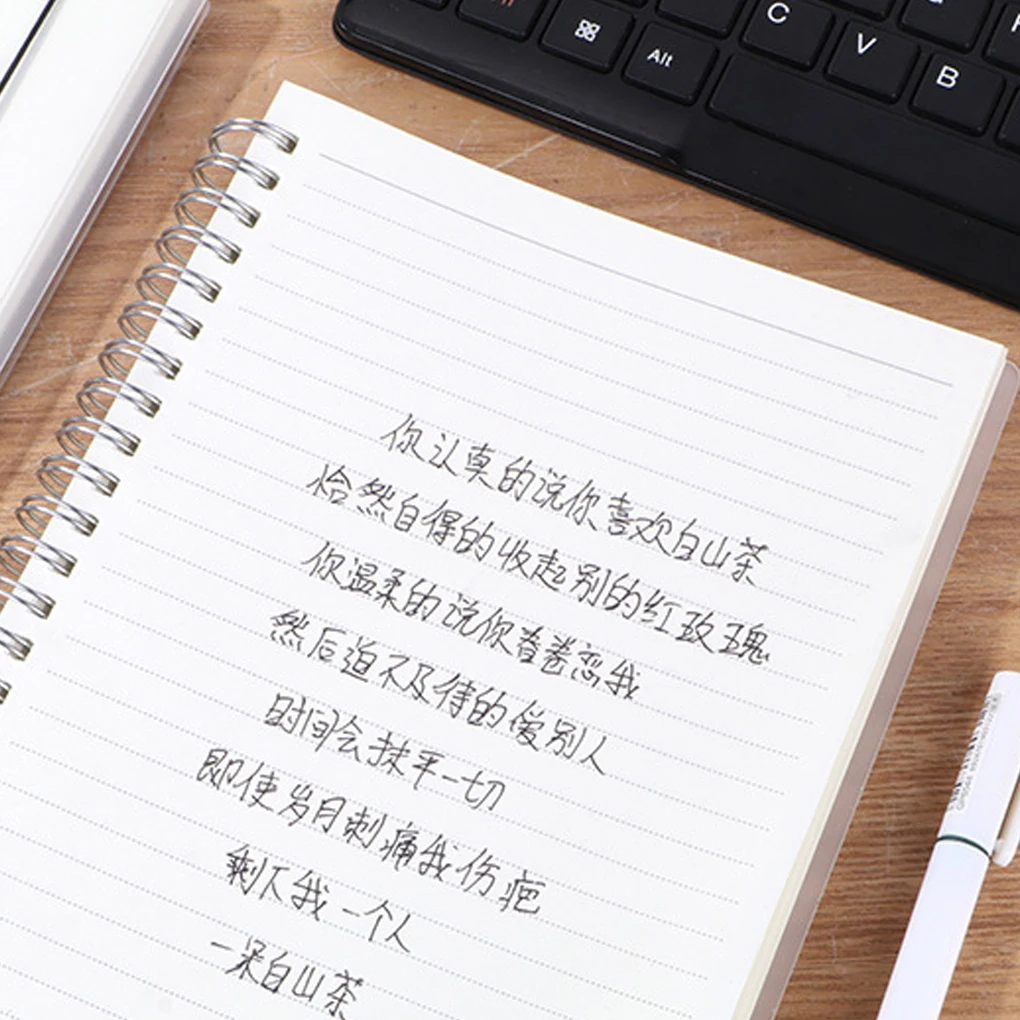 C
V
B
Alt
你认真的说你喜欢白山茶
恰然自得的收起别的红玫瑰
你温柔的说你眷卷恋我
然后迫不及待的爱别人
时间会抹平一切
即使岁月刺痛我伤疤
剩下我一个人
一朵白山茶